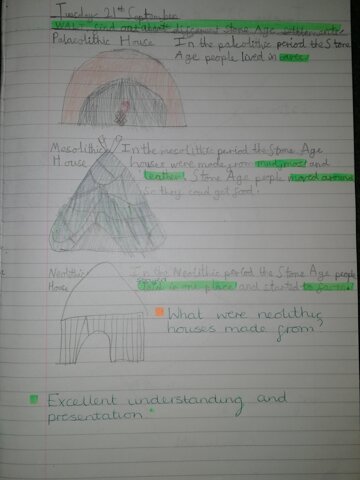 Tuesday 21st September
WALT find out about different Stone Age settlements
Palaeolithic House
In the paleolithic period the Stone
Age people lived in caves.
Mesolithic House
In the mesolithic period the Stone Age
houses were made from mud, moss and
leather. Stone Age people moved around
so they could get food.
Neolithic House
In the Neolithic period the Stone Age people
in one place and started to farm.
What were neolithic
houses made from?
Excellent understanding and
presentation.